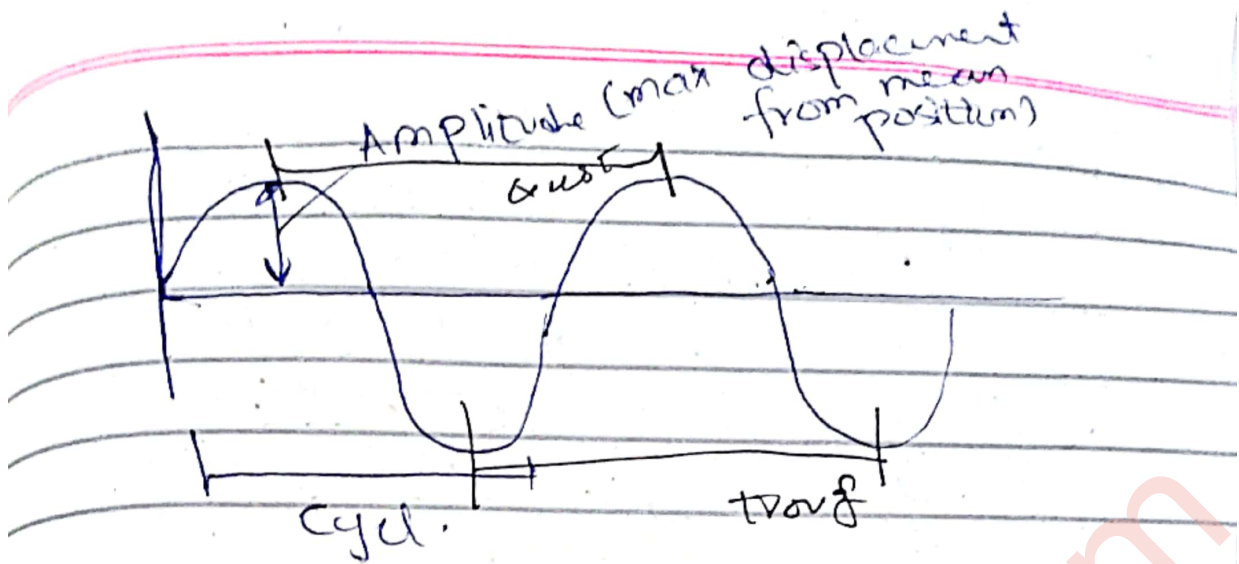 Amplitude (max displacement
from mean
position)
Crest
Cycl.
trouf